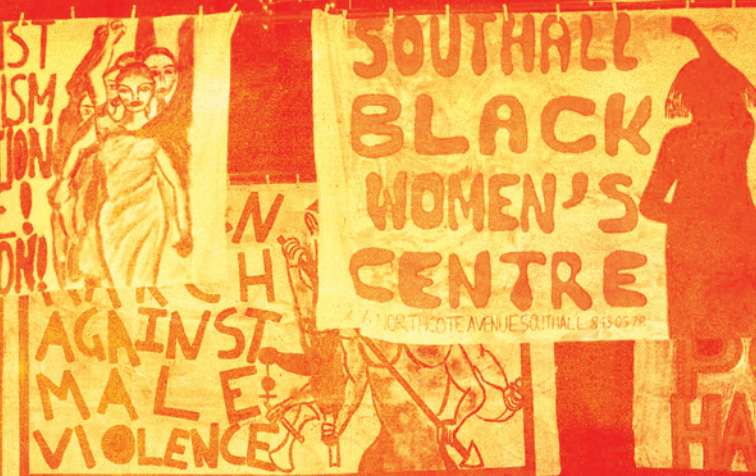 IST
ISM
ION
!
ON!
SOUTHALL
BLACK
WOMEN'S
CENTRE
NORTHCOTE AVENUE SOUTHALL
N
MARCH
AGAINST
MALE
VIOLENCE
P
HA